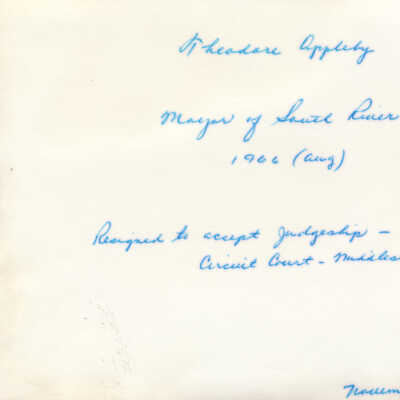 Theodore Appleby
Mayor of South River
1966 (Aug)
Resigned to accept Judgeship –
Circuit Court – Middles
Novem